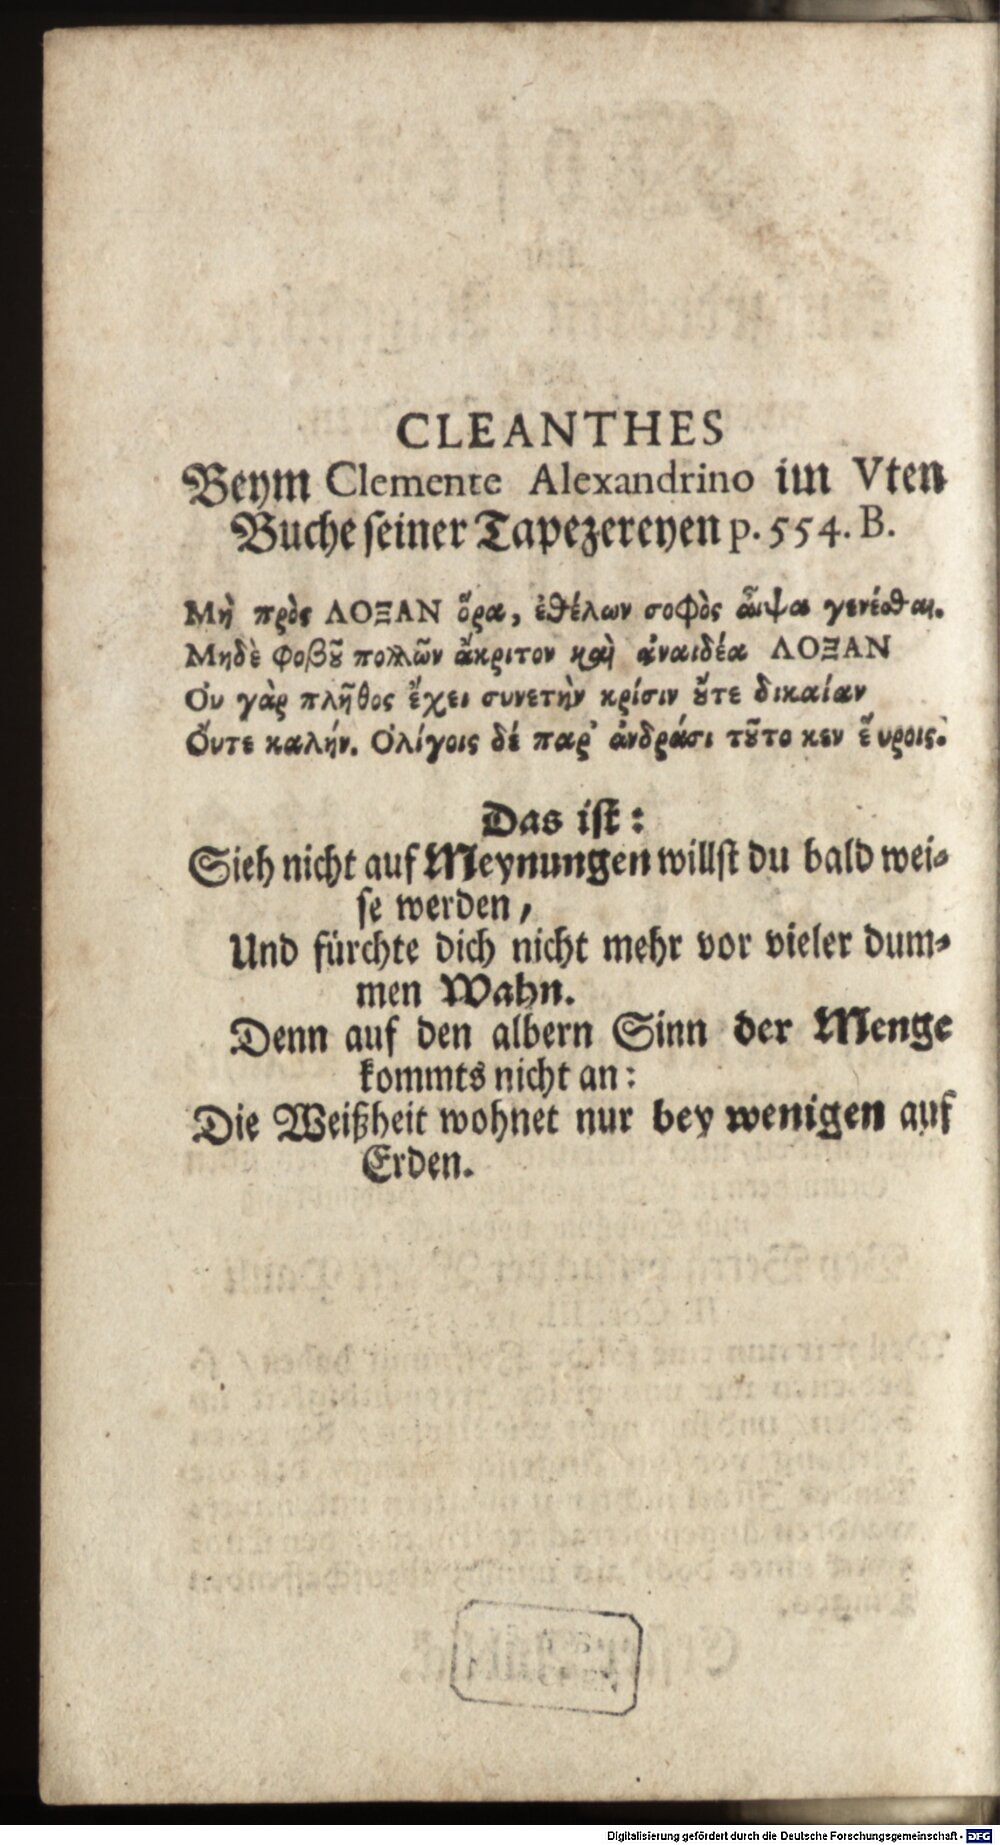 CLEANTHES
Beym Clemente Alexandrino im Vten
Buche seiner Tapezereyen p. 554. B.
Μὴ πρὸς ΛΟΞΑΝ ὅρα, ἐθέλων σοφὸς αἶψα γενέσθαι.
Μηδὲ φοβοῦ πολλῶν ἄκριτον καὶ ἀναιδέα ΛΟΞΑΝ
Οὐ γὰρ πλῆθος ἔχει συνετὴν κρίσιν οὔτε δικαίαν
Οὔτε καλήν. Ὀλίγοις δέ παρ' ἀνδράσι τοῦτο κεν εὕροις.
Das ist:
Sieh nicht auf Meynungen willst du bald wei-
se werden,
Und fürchte dich nicht mehr vor vieler dum-
men Wahn.
Denn auf den albern Sinn der Menge
kommts nicht an:
Die Weißheit wohnet nur bey wenigen auf
Erden.
Digitalisierung gefördert durch die Deutsche Forschungsgemeinschaft - DFG